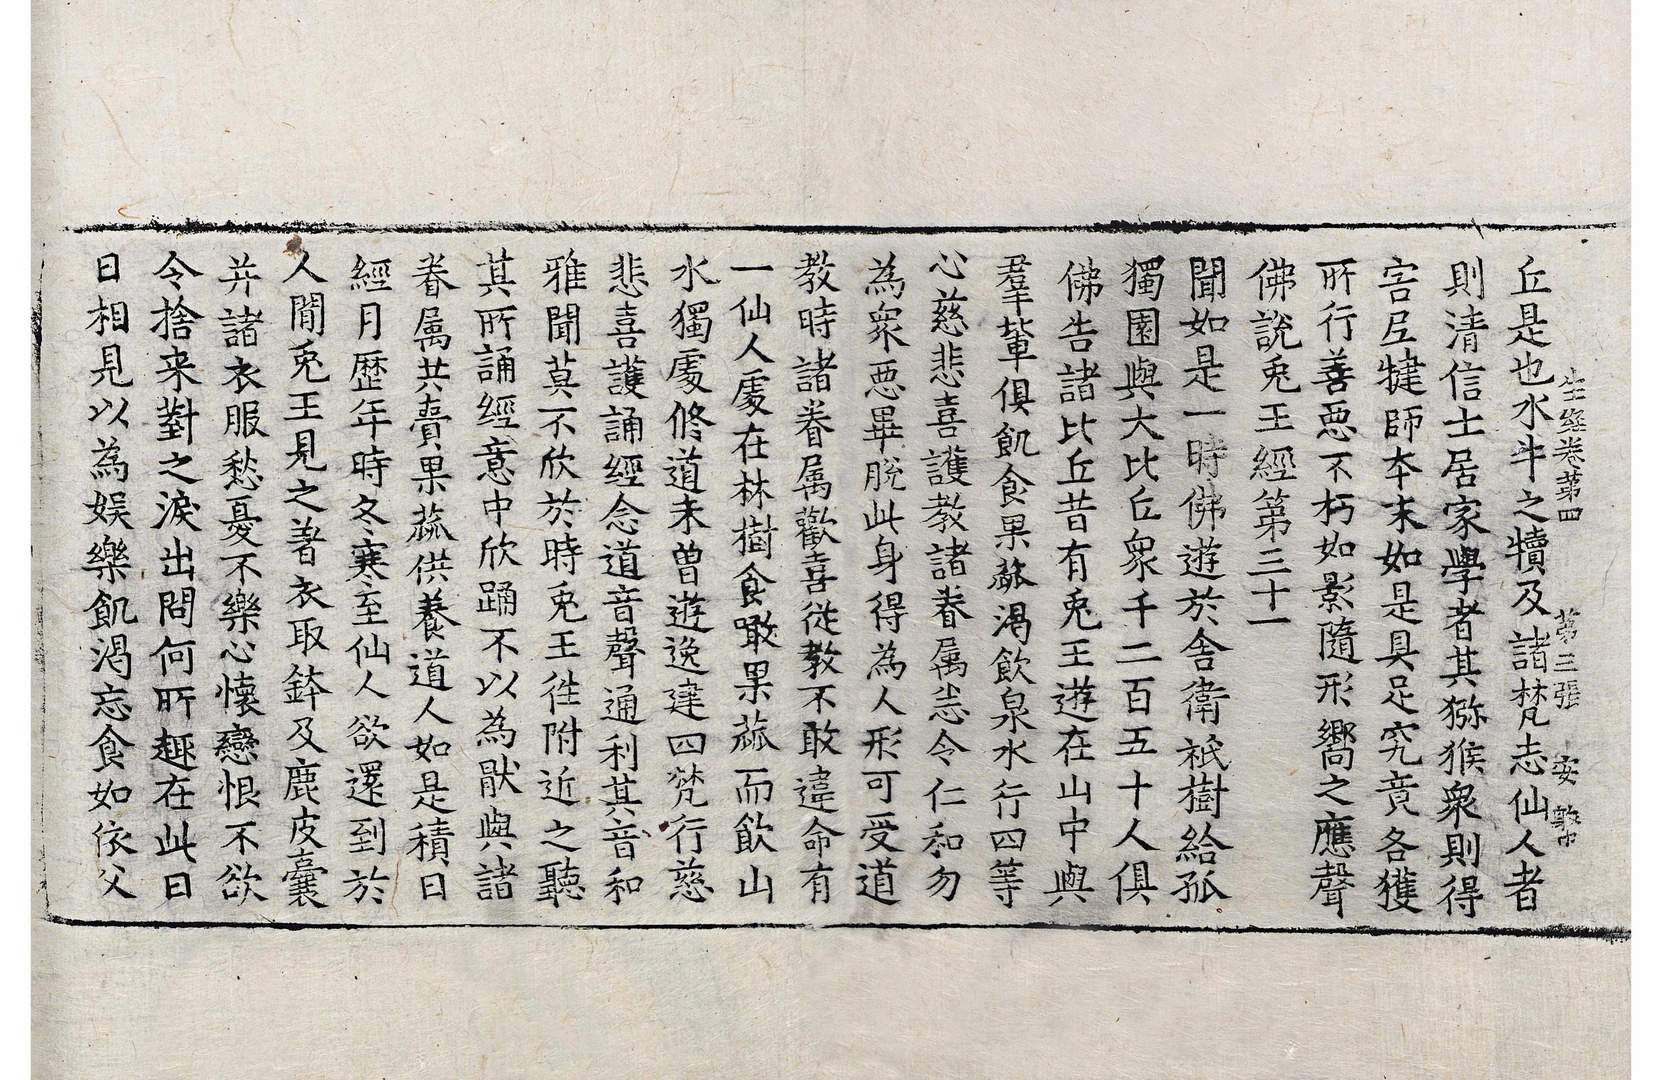 生經卷第四 第三張 安
丘是也水牛之犢及諸梵志仙人者
則清信士居家學者其猕猴衆則得
害尼揵師本末如是具足究竟各獲
所行善惡不朽如影隨形嚮之應聲
佛説兎王經第三十一
聞如是一時佛遊於舍衛祇樹給孤
獨園與大比丘衆千二百五十人俱
佛告諸比丘昔有兎王遊在山中與
羣輩俱飢食果蓏渴飲泉水行四等
心慈悲喜護教諸眷属悉令仁和勿
為衆惡畢脫此身得為人形可受道
教時諸眷属歡喜從教不敢違命有
一仙人處在林樹食噉果蓏而飲山
水獨處修道未曽遊逸達四梵行慈
悲喜護誦經念道音聲通利其音和
雅聞莫不欣於時兎王往附近之聽
其所誦經意中欣踊不以為猒與諸
眷属共賫果蓏供養道人如是積日
經月歴年時冬寒至仙人欲還到於
人閒兎王見之著衣取鉢及鹿皮囊
并諸衣服愁憂不樂心懐戀恨不欲
令捨来對之淚出問何所趣在此日
日相見以為娱樂飢渴忘食如依父